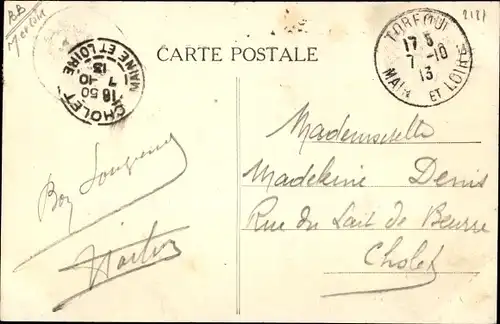 CARTE POSTALE
TORFOU
17 5
7 -10
13
MAINE ET LOIRE
CHOLET
16 50
7 -10
13
MAINE ET LOIRE
Mademoiselle
Madeleine Denis
Rue du Lait de Beurre
Cholet
Bon